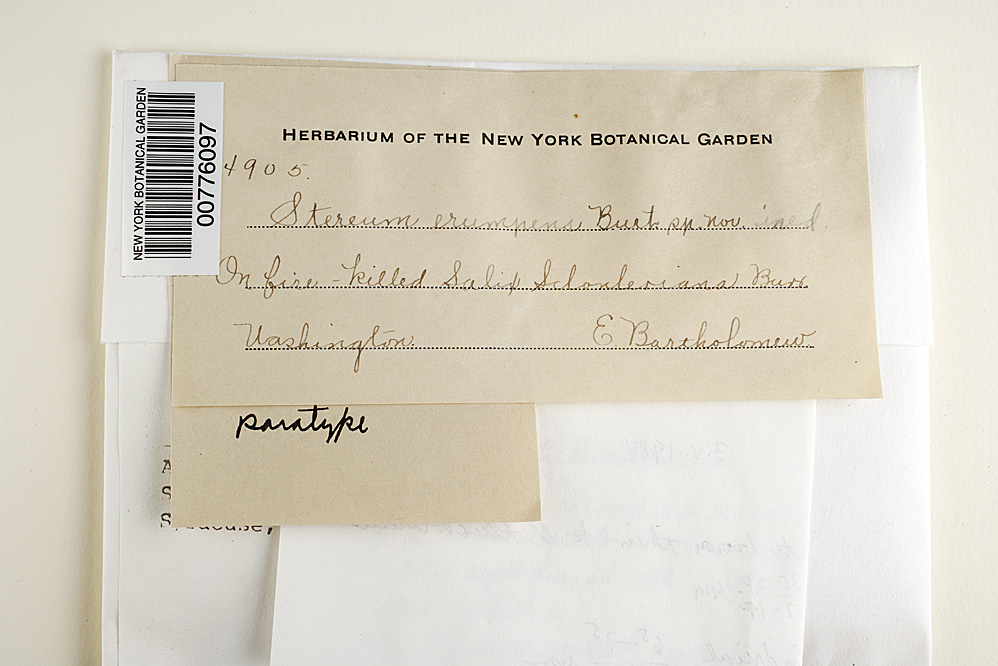 NEW YORK BOTANICAL GARDEN
00776097
HERBARIUM OF THE NEW YORK BOTANICAL GARDEN
4905.
Stereum erumpens Burt sp. nov. ined.
On fire-killed Salix Scouleriana Barr
Washington. E. Bartholomew.
paratype
A
S
Syracuse,